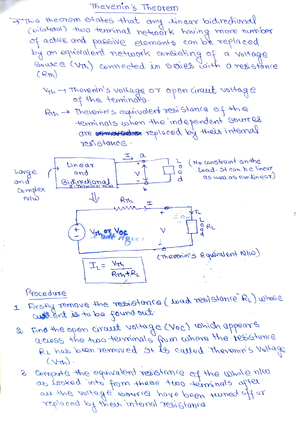 Thevenin's Theorem
This theorem states that any linear bidirectional
(bilateral) two terminal network having more number
of active and passive elements can be replaced
by an equivalent network consisting of a voltage
source (Vth) connected in series with a resistance
(Rth)
Vth → Thevenin's voltage or open circuit voltage
of the terminals.
Rth → Thevenin's equivalent resistance of the
terminals when the independent sources
are replaced by their internal
resistance.
Large
and
complex
N/W
Linear
and
Bidirectional
I
a
V
b
Load
(No constraint on the
Load. It can be linear
as well as nonlinear)
Rth
I
Vth or Voc
V
IL
RL
Load
(Thevenin's equivalent N/W)
IL = Vth
Rth + RL
Procedure
1. Firstly remove the resistance (load resistance RL) whose
current is to be found out.
2. Find the open circuit voltage (Voc) which appears
across the two terminals from where the resistance
RL has been removed. It is called Thevenin's Voltage
(Vth).
3. Compute the equivalent resistance of the whole n/w
as looked into from these two terminals after
all the voltage source have been turned off or
replaced by their internal resistance